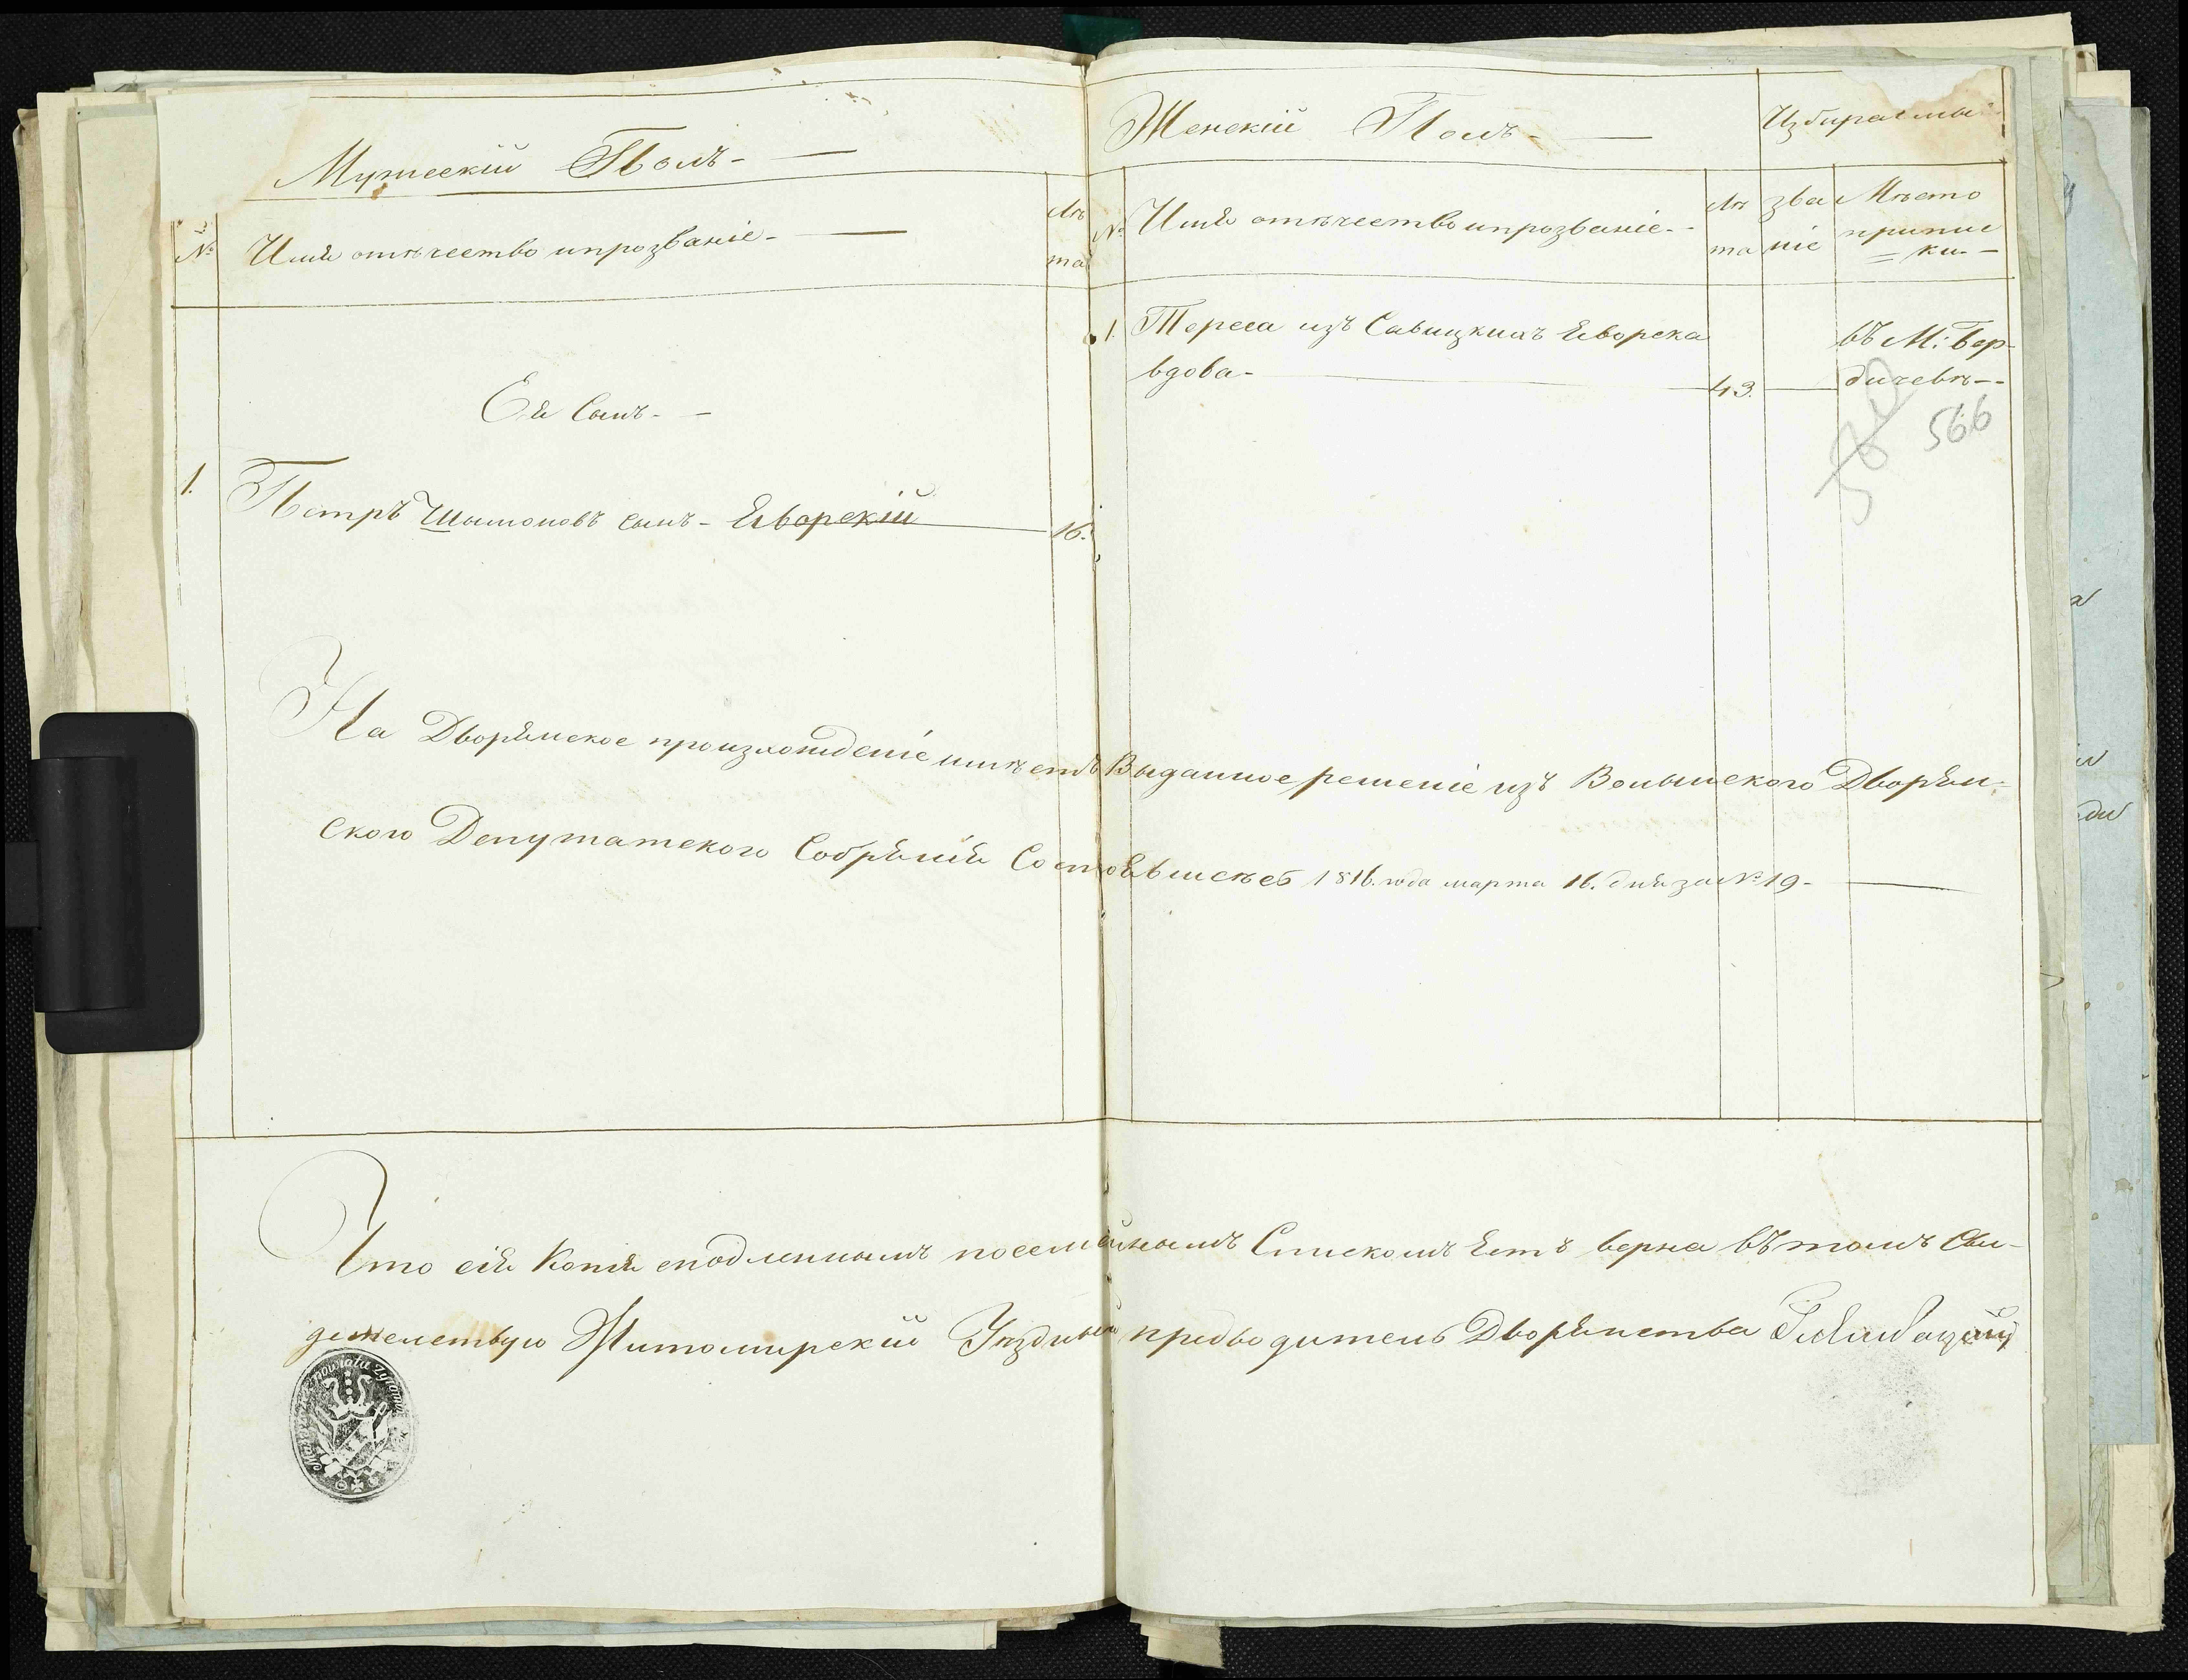 Мужескій Полъ -
№ Имя отѣчество и прозваніе - Лѣта
Ея Сынъ -
1. Петръ Шымоновъ сынъ - Яворскій 16.
Женскій Полъ - Избираемы
№ Имя отѣчество и прозваніе - Лѣта званіе Мѣсто приписки -
1. Тереса изъ Савицкихъ Яворска въ М: Бер-
вдова - 43. дичевѣ -
566
На Дворянское произхожденіе имѣетъ Выданное решеніе изъ Волынского Дворян-
ского Депутатского Собрянія Состоявшееся 1816. года марта 16. дня за № 19 -
Что сія Копія сподленнымъ посемейнымъ Спискомъ Естъ верна въ томъ Сви-
детелствую Житомирскій Уѣздный предводитель Дворянства
powiatu